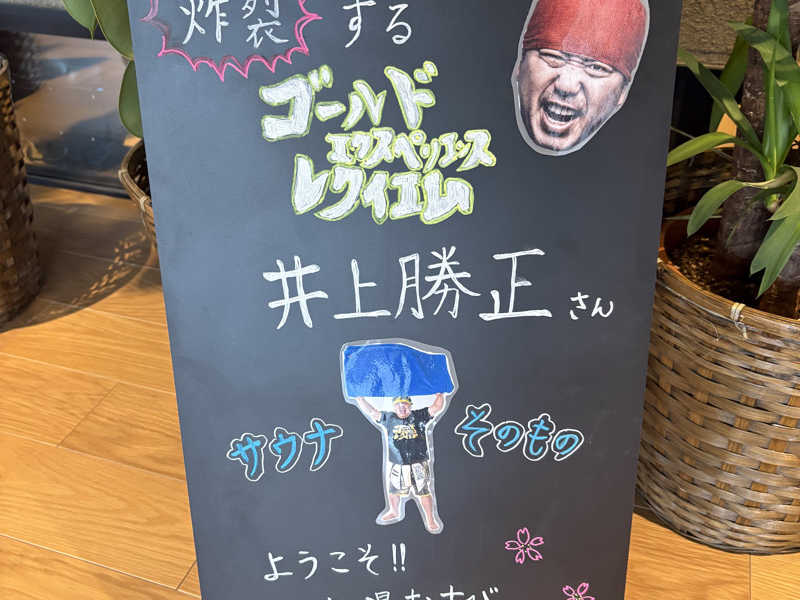 炸裂する
ゴールド
エクスペリエンス
レクイエム
井上勝正さん
サウナ そのもの
ようこそ!!